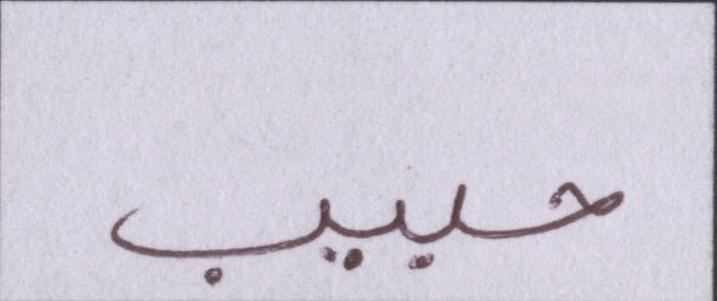 حبيب